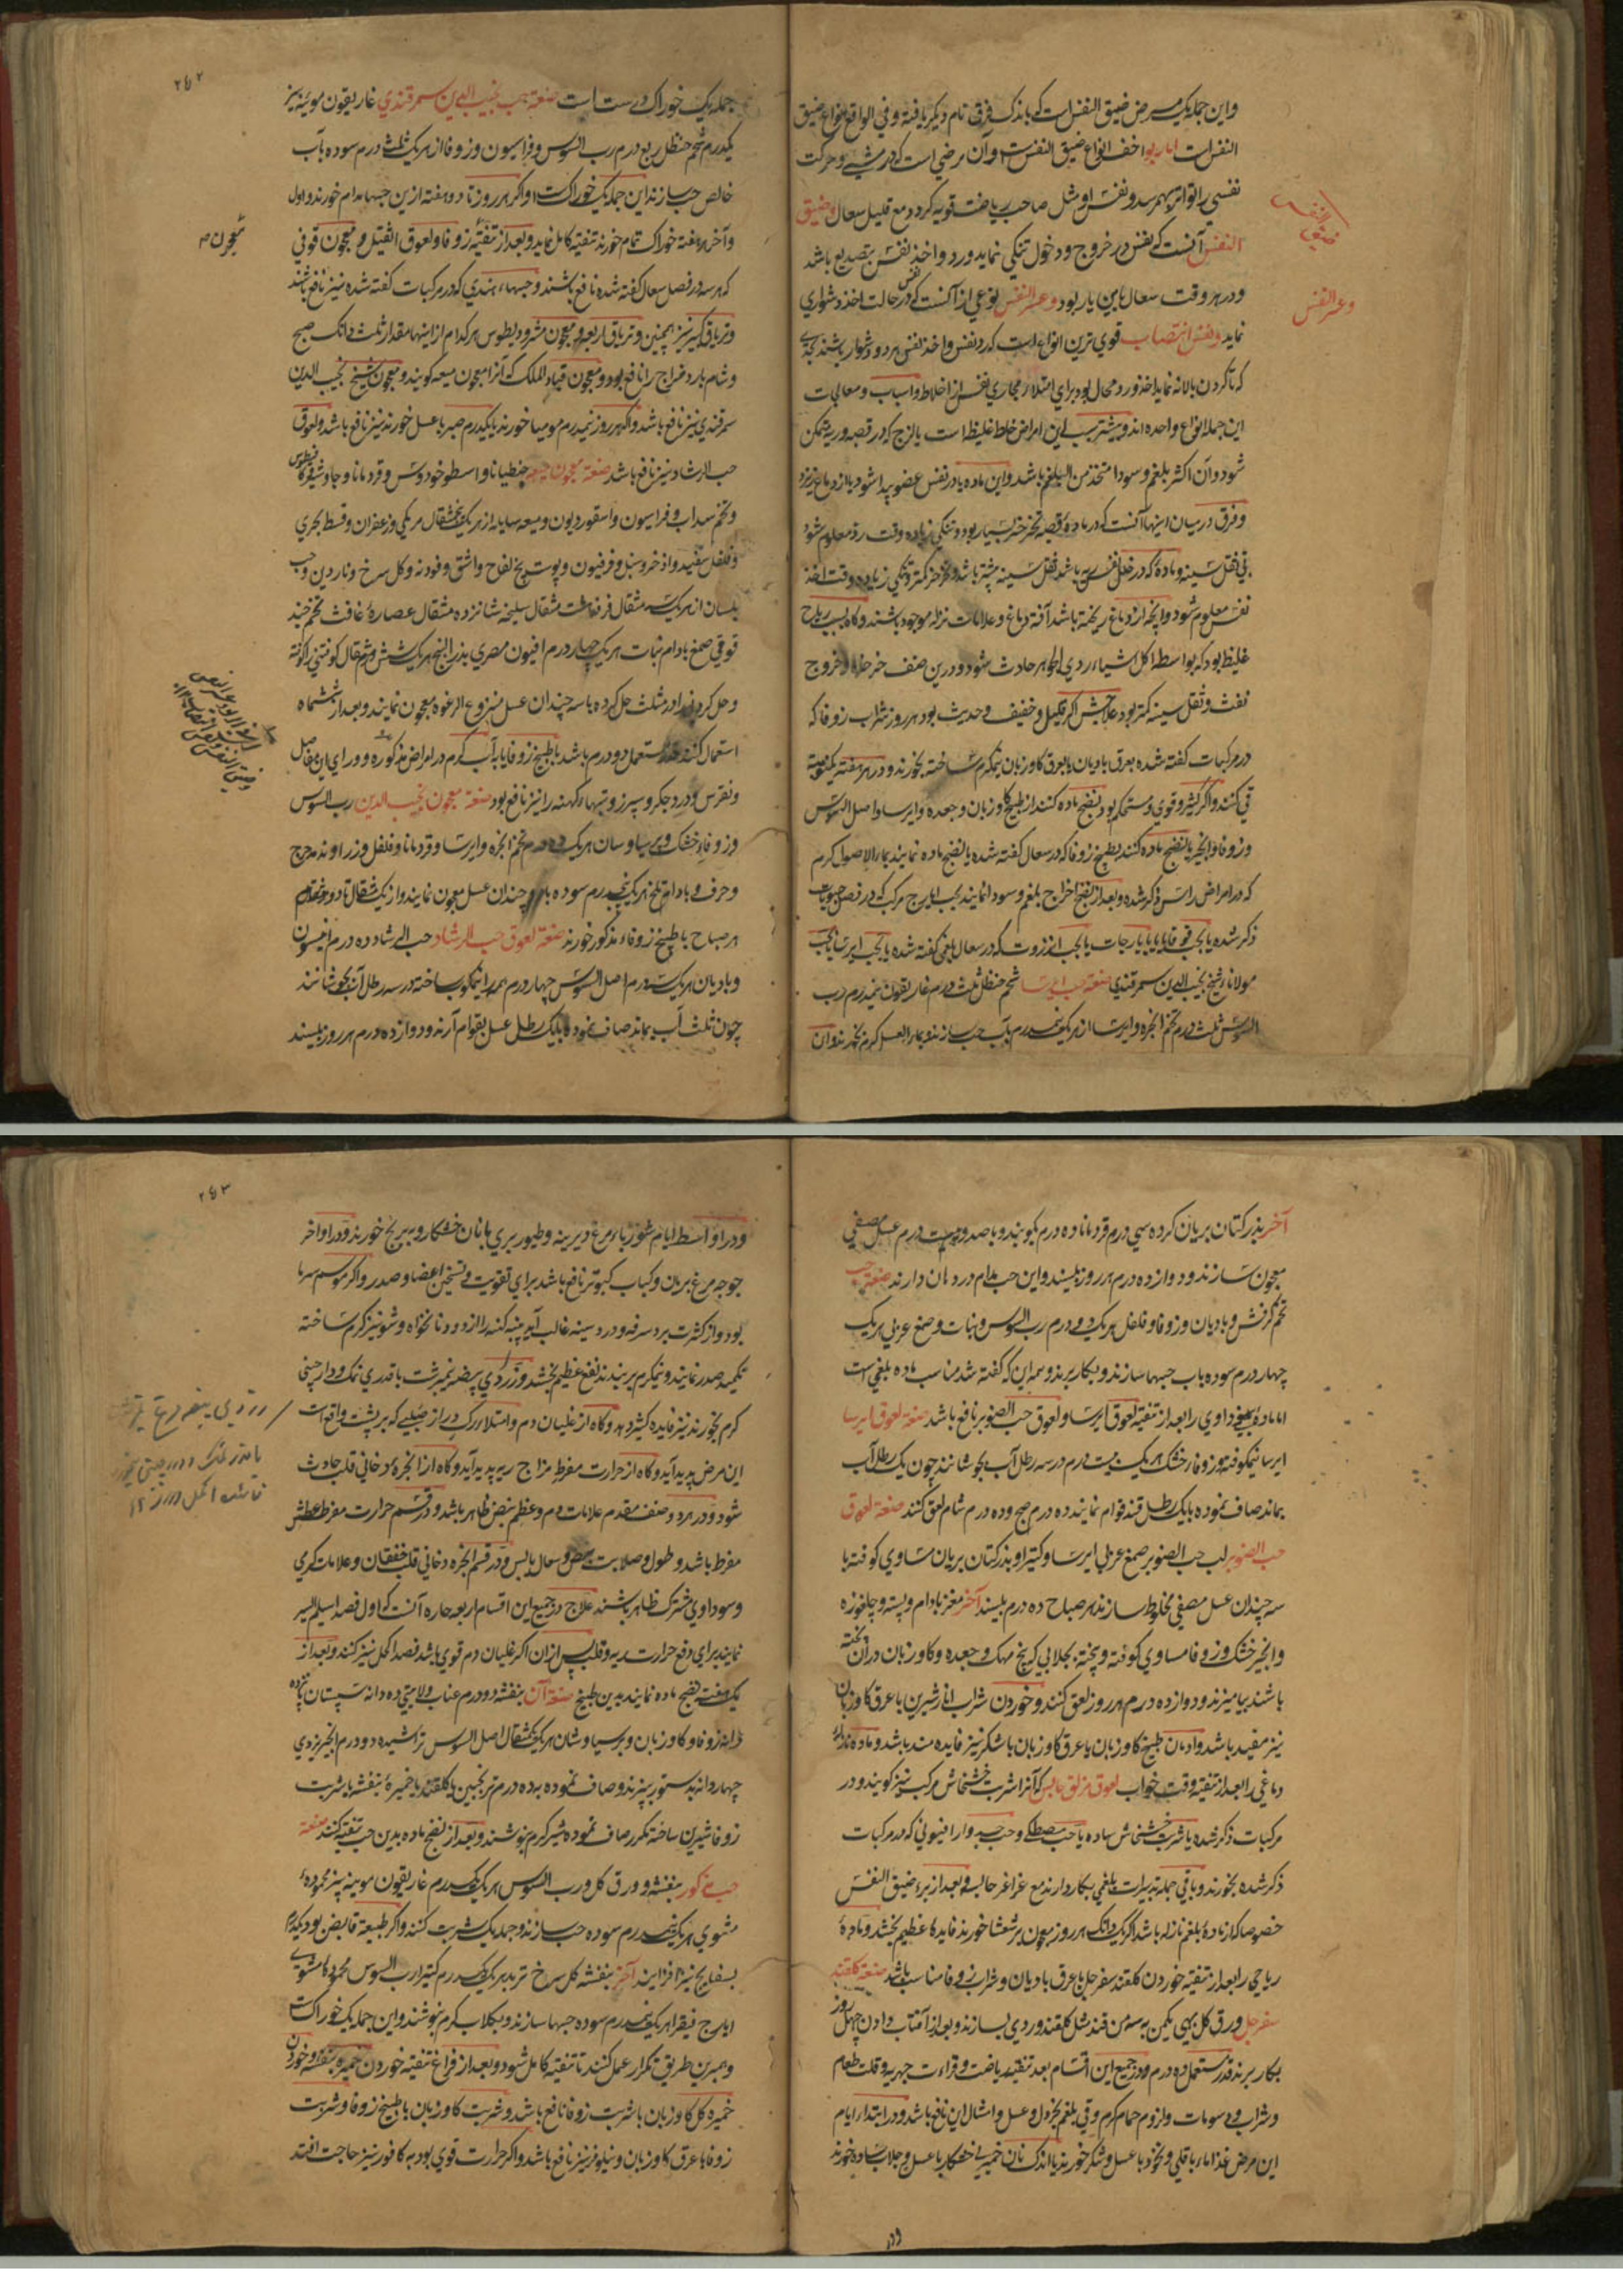 واین جمله یک مرض ضیق النفس است که باندک فرقی نام دیگر یافته و فی الواقع انواع ضیق
النفس است اما ربو اخف انواع ضیق النفس است و آن مرضی است که در مشی و حرکت
نفسی را تواتر بهم رسد و نفس او مثل صاحب ریاضت قویه گردد مع قلیل سعال و ضیق
النفس آنست که نفس در خروج و دخول تنگی نماید و رد و اخذ نفس بتصدیع باشد
و در هر وقت سعال باین یار بود و عسر النفس نوعی از آنست که در حالت اخذ نفس دشواری
نماید و نفس انتصاب قوی ترین انواع است که رد نفس و اخذ نفس هر دو دشوار باشند بحدی
که تا گردن بالا نه نماید اخذ و رد محال بود برای امتلاء مجاری نفس از اخلاط و اسباب و معالجات
این جمله انواع واحده اند و بیشتر سبب این امراض خلط غلیظ است یا لزج که در قصبه و ریه متمکن
شود و آن اکثر بلغم و سودا متخذ من البلغم باشد و این ماده یا در نفس عضو پیدا شود یا از دماغ ریزد
و فرق در میان اینها آنست که در ماده قصبه خرخره بسیار بود و تنگی زیاده وقت رد معلوم شود
بی ثقل سینه و ماده که در خلل ریه باشد ثقل سینه بیشتر باشد و خرخره کمتر و تنگی زیاده وقت اخذ
نفس معلوم شود و آنچه از دماغ ریخته باشد آفة دماغ و علامات نزله موجود باشند و گاه بسبب ریاح
غلیظ بود که بواسطه اکل اشیاء ردی الجوهر حادث شود و درین صنف خرخره و خروج
نفث و ثقل سینه کمتر بود علاجش اگر قلیل و خفیف و حدیث بود هر روز شراب زوفا که
در مرکبات گفته شده بعرق بادیان یا بعرق گاوزبان نیمگرم ساخته بخورند و در هر هفته یک نوبت
قی کنند و اگر کثیر و قوی و مستحکم بود نضج ماده کنند از طبیخ گاوزبان و جعده و ایرسا و اصل السوس
و زوفا و انجیر یا نضج ماده کنند بطبیخ زوفا که در سعال گفته شده یا نضج ماده نمایند بماء الاصول گرم
که در امراض راس ذکر شده و بعد از نضج اخراج بلغم و سودا نمایند بحب ایارج مرکب که در فصل حبوبات
ذکر شده یا بحب قوقایا یا بایارجات یا بحب انزروت که در سعال بلغمی گفته شده یا بحب ایرسا یا بحب
مولانا شیخ نجیب الدین سمرقندی صنعة حب ایرسا شحم حنظل ثلث درم غاریقون نیمدرم رب
السوس ثلث درم تخم انجره و ایرسا از هر یک نیمدرم بآب حب سازند و بماء العسل گرم بخورند و ان
ضیق النفس
وعسر النفس
۲۶۲
جمله یک خوراک درست است صنعة حب نجیب الدین سمرقندی غاریقون موئینه بیز
یکدرم شحم حنظل ربع درم رب السوس و فراسیون و زوفا از هر یک ثلث درم سوده بآب
خالص حب سازند این جمله یک خوراکست و اگر هر روز تا دو هفته ازین حبها مدام خورند و اول
و آخر هر هفته خوراک تمام خورند تنقیه کامل نماید و بعد از تنقیه زوفا و لعوق الفیل و معجون قوفی
که هر سه در فصل سعال گفته شده نافع باشند و حبهاء هندی که در مرکبات گفته شده نیز نافع باشند
و تریاق کبیر نیز همچنین و تریاق اربعه و معجون مثرودیطوس هر کدام از اینها مقدار ثلث دانگ صبح
و شام بارد مزاج را نافع بود و معجون قیاد الملک که آنرا معجون میعه گویند و معجون شیخ نجیب الدین
سمرقندی نیز نافع باشد و اگر هر روز نیمدرم مومیا خورند یا یکدرم صبر با عسل خورند نیز نافع باشد و لعوق
حب الرشاد نیز نافع باشد صنعة معجون میعه جنطیانا و اسطوخودوس و قردمانا و جاوشیر و کمافیطوس
و تخم سداب و فراسیون و اسقوردیون و میعه سایله از هر یک پنجمثقال مر مکی و زعفران و قسط بحری
و فلفل سفید و اذخر و سنبل و فرفیون و پوست بیخ لفاح و اشق و فودنه و گل سرخ و ناردین و حب
بلسان از هر یک سه مثقال قرفه هشت مثقال سلیخه شانزده مثقال عصاره غافث تخم خبه
قوقی صمغ بادام نبات هر یک چهار درم افیون مصری بذر البنج هر یک شش مثقال کوفتنی را کوفته
و حل کردنی را در مثلث حل کرده با سه چندان عسل منزوع الرغوه معجون نمایند و بعد از ششماه
استعمال کنند قدر مستعمل دو درم باشد با طبیخ زوفا یا بآب گرم در امراض مذکوره و ورای این مفاصل
و نقرس و درد جگر و سپرز و تبهاء کهنه را نیز نافع بود صنعة معجون نجیب الدین رب السوس
و زوفاء خشک و پرسیاوسان هر یک ده درم تخم انجره و ایرسا و قردمانا و فلفل و زراوند مدحرج
و حرف و بادام تلخ هر یک پنجدرم سوده با دو چندان عسل معجون نمایند و از یک مثقال تا دو مثقال
هر صباح با طبیخ زوفاء مذکور خورند صنعة لعوق حب الرشاد حب الرشاد ده درم انیسون
و بادیان هر یک سه درم اصل السوس چهار درم همه را نیمکوب ساخته در سه رطل آب بجوشانند
چون ثلث آب بماند صاف نموده با یک رطل عسل بقوام آرند و دوازده درم هر روز بلیسند
معجون
آخر بذر کتان بریان کرده سی درم قردمانا ده درم بکوبند و با صد و بیست درم عسل مصفی
معجون سازند و دوازده درم هر روز بلیسند و این حب مدام در دهان دارند صنعة حب
تخم کرفس و بادیان و زوفا و فلفل هر یک دو درم رب السوس و نبات و صمغ عربی هر یک
چهار درم سوده بآب حبها سازند و بکار برند و همه این که گفته شد مناسب ماده بلغمی است
اما ماده بلغمی سوداوی را بعد از تنقیه لعوق ایرسا و لعوق حب الصنوبر نافع باشد صنعة لعوق ایرسا
ایرسا نیمکوفته و زوفا خشک هر یک بیست درم در سه رطل آب بجوشانند چون یک رطل آب
بماند صاف نموده با یک رطل قند قوام نمایند ده درم صبح و ده درم شام لعق کنند صنعة لعوق
حب الصنوبر لب حب الصنوبر صمغ عربی ایرسا و کتیرا و بذر کتان بریان مساوی کوفته با
سه چندان عسل مصفی مخلوط سازند هر صباح ده درم بلیسند آخر مغز بادام و پسته و چلغوزه
و انجیر خشک و زوفا مساوی کوفته و پخته بجلابی که بیخ مهک و جعده و گاوزبان در آن پخته
باشند بیامیزند و دوازده درم هر روز لعق کنند و خوردن شراب انار شیرین با عرق گاوزبان
نیز مفید باشد و ادمان طبیخ گاوزبان یا عرق گاوزبان با شکر نیز فایده مند باشد و ماده نازله
دماغی را بعد از تنقیه وقت خواب لعوق مزلق حابس که آنرا شربت خشخاش مرکب نیز گویند و در
مرکبات ذکر شده یا شربت خشخاش ساده یا حب مصطکی و حب جدوار افیونی که در مرکبات
ذکر شده بخورند و باقی جمله تدبیرات بلغمی بکار دارند مع غراغر حابسه و بعد از برء ضیق النفس
خصوصا که از ماده بلغم نازله باشد اگر یک دانگ هر روز معجون برشعشا خورند فایده عظیم بخشد و ماده
ریاحی را بعد از تنقیه خوردن گلقند سفرجل با عرق بادیان و شراب زوفا مناسب باشد صنعة گلقند
سفرجل ورق گل بهی یکمن به سه من قند مثل گلقند وردی بسازند و بعد از آفتاب دادن چهل روز
بکار برند قدر مستعمل ده درم و در جمیع این اقسام بعد تنقیه ریاضت و قراءت جهریه و قلت طعام
و شراب و دسومات و لزوم حمام گرم و قی بلغم بخردل و عسل و امثال این نافع باشد و در ابتداء ایام
این مرض غذا ماء باقلی و نخود با عسل و شکر خورند یا اندک نان خمیری خشکار با عسل و جلاب ساده خورند
۲۶۳
و در اواسط ایام شورباء مرغ دیرینه و طیور بری با نان خشکار و به برنج خورند و در اواخر
جوجه مرغ بریان و کباب کبوتر نافع باشد برای تقویت و تسخین اعضا و صدر و اگر موسم سرما
بود و از کثرت برد سرفه و درد سینه غالب آید پنبه کهنه را از دود نانخواه و شونیز گرم ساخته
تکمید صدر نمایند و نیمگرم بربندند نفع عظیم بخشد و زردی بیضه نیمبرشت با قدری نمک و دارچینی
گرم بخورند نیز فایده کثیر دهد و گاه از غلیان دم و امتلاء رگ دراز صلبی که بر پشت واقع است
این مرض پدید آید و گاه از حرارت مفرط مزاج ریه پدید آید و گاه از ابخره دخانی قلب حادث
شود و در هر دو صنف مقدم علامات دم و عظم نبض ظاهر باشد و در قسم حرارت مفرط عطش
مفرط باشد و طول و صلابت نبض و سعال یابس و در قسم ابخره دخانی قلب خفقان و علامات گرمی
و سوداوی مشترک ظاهر باشند علاج در جمیع این اقسام اربعه حاره آنست که اول فصد اسیلم الیسر
نمایند برای دفع حرارت ریه و قلب پس از ان اگر غلیان دم قوی باشد فصد اکحل نیز کنند و بعد از
یک هفته نضج ماده نمایند بدین طبیخ صنعة آن بنفشه دو درم عناب ولایتی ده دانه سپستان پانزده
دانه زوفا و گاوزبان و پرسیاوشان هر یک یکمثقال اصل السوس تراشیده دو درم انجیر یزدی
چهار دانه بدستور بپزند و صاف نموده به ده درم ترنجبین یا گلقند یا خمیره بنفشه یا شربت
زوفا شیرین ساخته مکرر صاف نموده شیر گرم بنوشند و بعد از نضج ماده بدین حب تنقیه کنند صنعة
حب مذکور بنفشه و ورق گل و رب السوس هر یک یکدرم غاریقون موئینه بیز محموده
مشوی هر یک نیمدرم سوده حب سازند و جمله یک شربت کنند و اگر طبیعة قابض بود یکدرم
بسفایج نیز افزایند آخر بنفشه گل سرخ تربد هر یک یکدرم کتیرا رب السوس محموده مشوی
ایارج فیقرا هر یک نیمدرم سوده حبها سازند و بگلاب گرم بنوشند و این جمله یک خوراکست
و بهمین طریق تکرار عمل کنند تا تنقیه کامل شود و بعد از فراغ تنقیه خوردن خمیره بنفشه و خوردن
خمیره گل گاوزبان با شربت زوفا نافع باشد و شربت گاوزبان با طبیخ زوفا و شربت
زوفا با عرق گاوزبان و نیلوفر نیز نافع باشد و اگر حرارت قوی بود به کافور نیز حاجت افتد